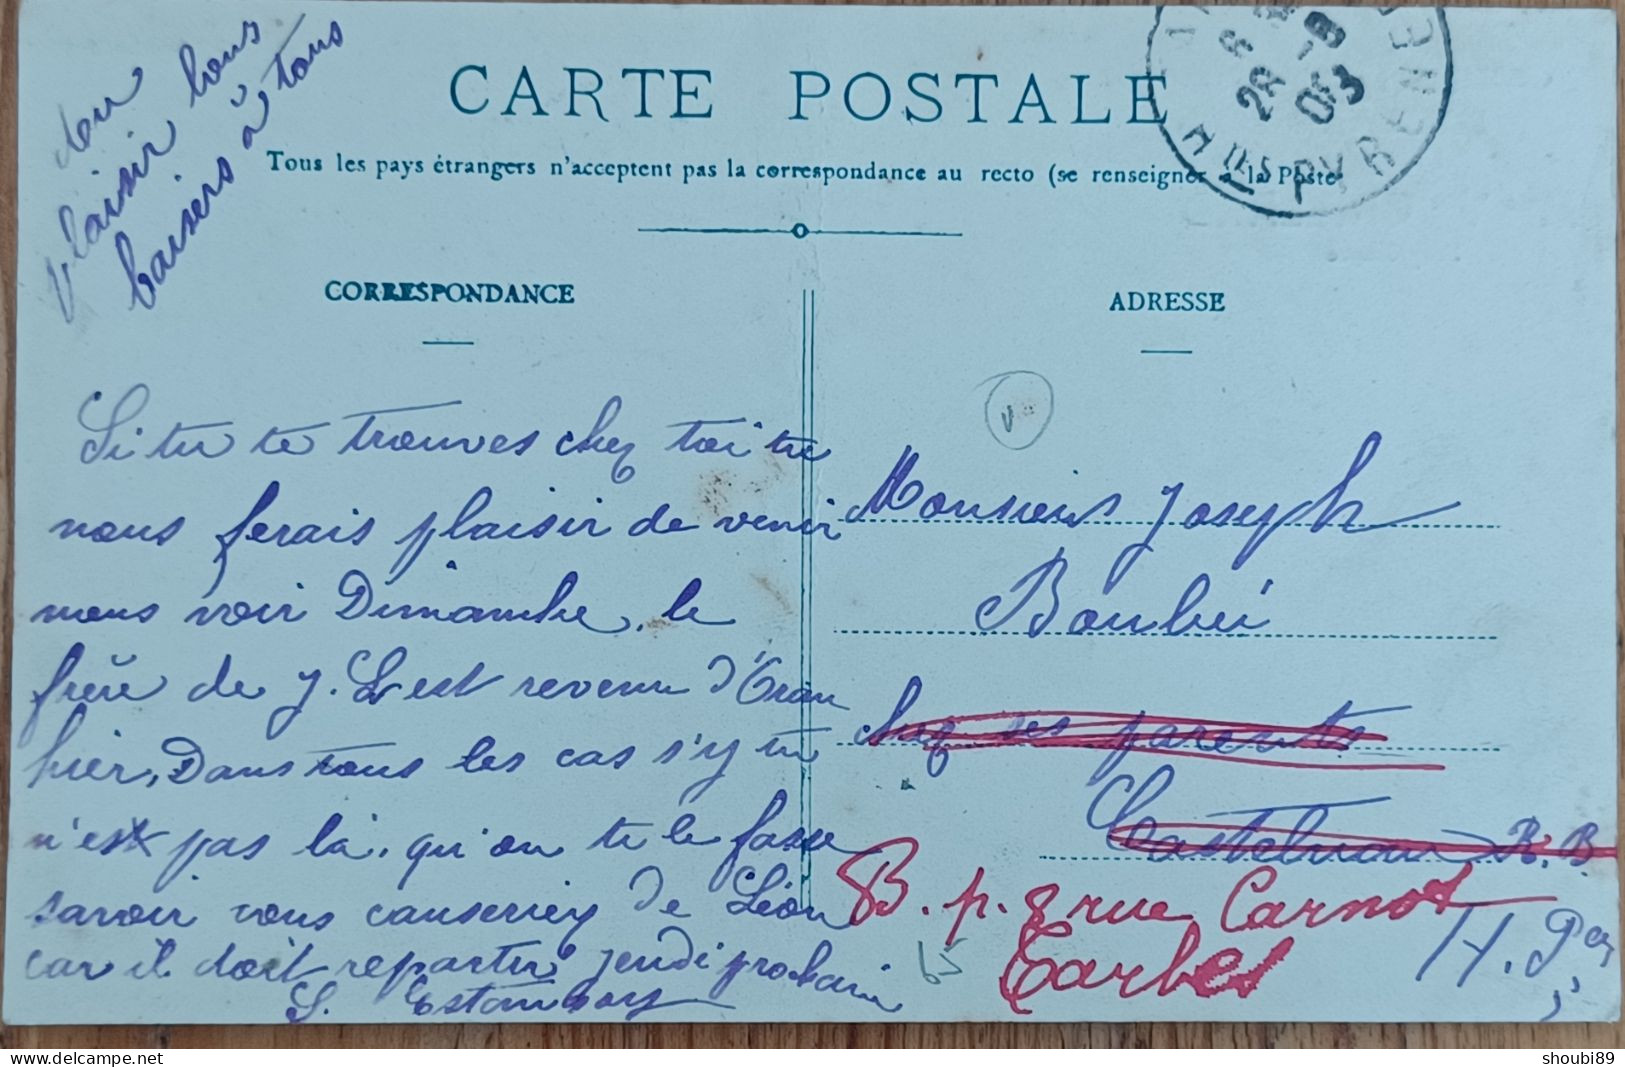 don
plaisir bons
baisers à tous
CARTE POSTALE
Tous les pays étrangers n'acceptent pas la correspondance au recto (se renseigner à la Poste
28 -8
05
H^TES PYRENEE
CORRESPONDANCE
ADRESSE
Si tu te trouves chez toi tu
nous ferais plaisir de venir
nous voir Dimanche, le
frère de J. L est revenu d'Oran
hier, Dans tous les cas s'y tu
n'est pas là, qu'on te le fasse
savoir vous causeriez de Léon
car il doit repartir jeudi prochain
S. Estampoy
Monsieur Joseph
Boubéi
chez ses parents
Castelnau R. B
B. p. 8 rue Carnot
Tarbes
H. P^ées
65
shoubi89